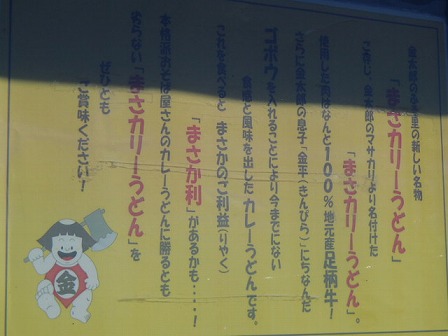 金太郎のふる里の新しい名物
「まさカリーうどん」
ご存じ、金太郎のマサカリより名付けた
「まさカリーうどん」。
使用した肉はなんと100%地元産足柄牛！
さらに金太郎の息子「金平（きんぴら）」にちなんだ
ゴボウを入れることにより今までにない
食感と風味を出したカレーうどんです。
これを食べると まさかのご利益（りやく）
「まさか利」があるかも・・・・！
本格派おそば屋さんのカレーうどんに勝るとも
劣らない「まさカリーうどん」を
ぜひとも
ご賞味ください！
金